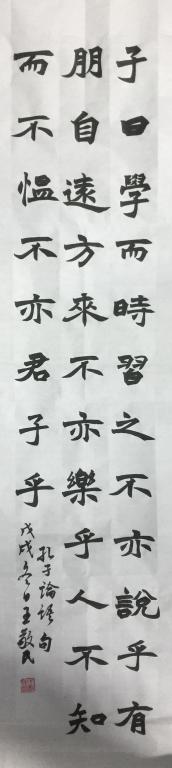 子曰學而時習之不亦說乎有
朋自遠方來不亦樂乎人不知
而不愠不亦君子乎
孔子論語句
戊戌冬日王敬民